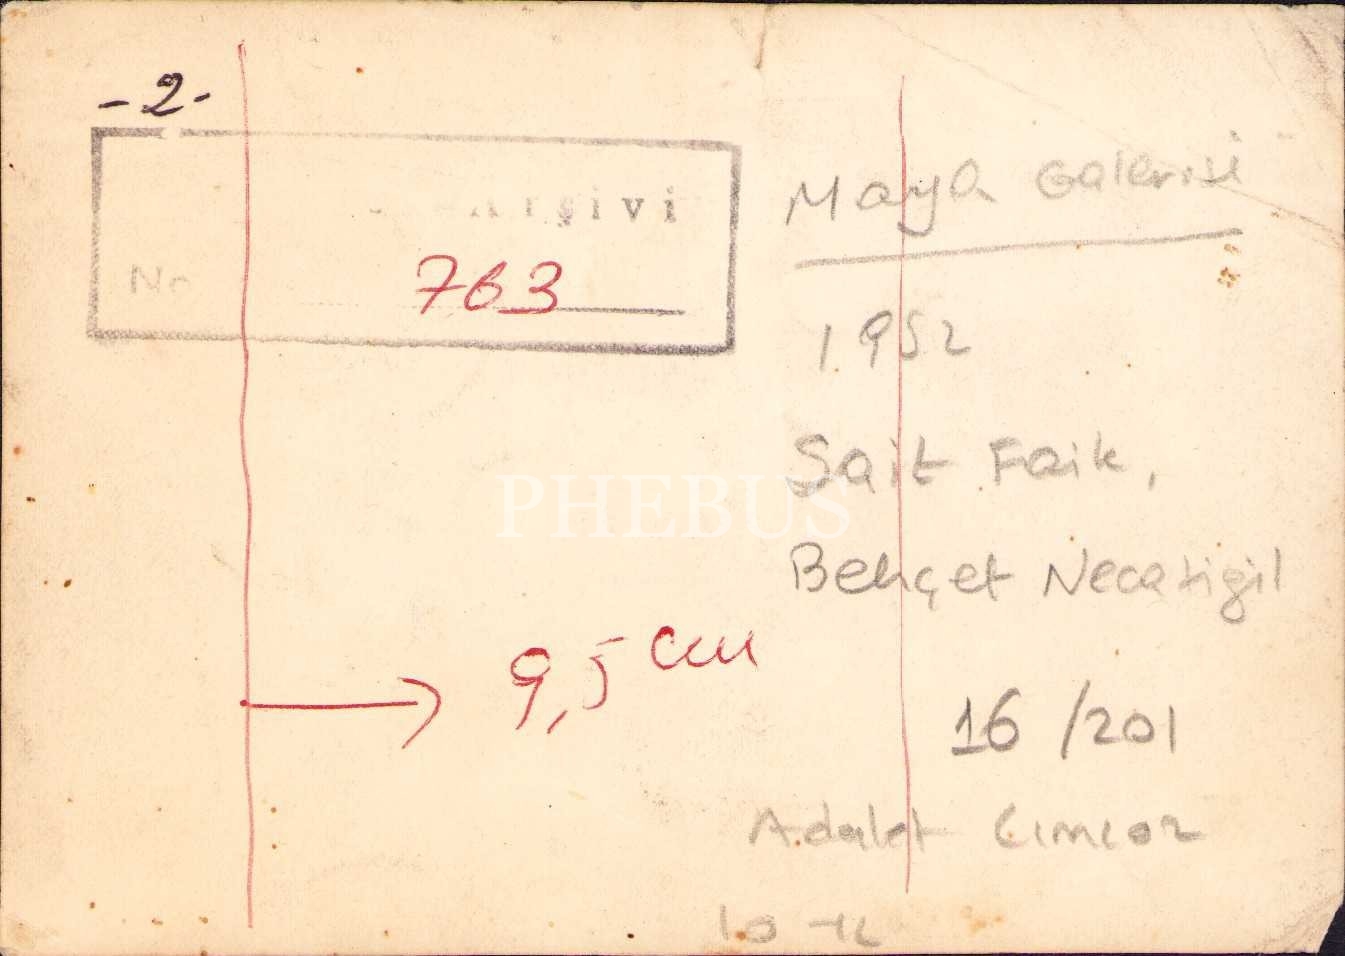 -2-
Arşivi
No 763
Maya Galerisi
1952
Sait Faik,
Behçet Necatigil
PHEBUS
9,5 cm
16/201
Adalet Cimcoz